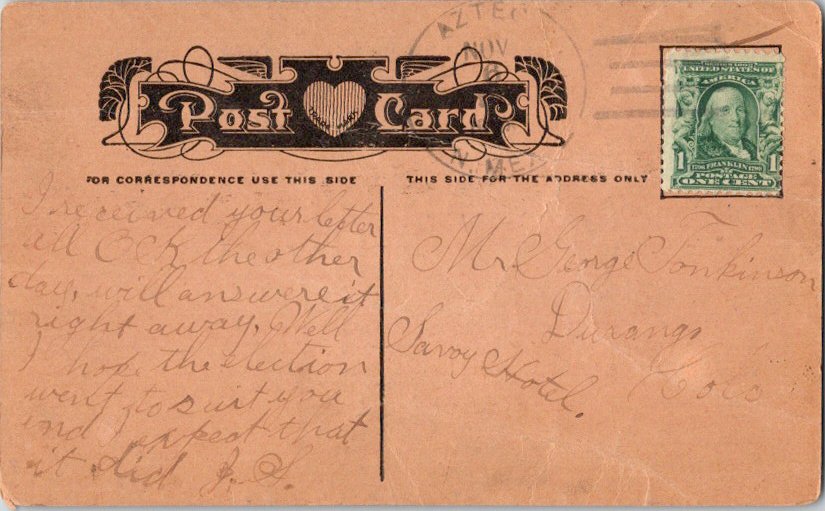 AZTEC
NOV
6
N. MEX.
Post Card
UNITED STATES OF
AMERICA
1 FRANKLIN 1
POSTAGE
ONE CENT
FOR CORRESPONDENCE USE THIS SIDE
THIS SIDE FOR THE ADDRESS ONLY
I received your letter
all O.K. the other
day, will answere it
right away. Well
I hope the election
went to suit you
and I expect that
it did J. S.
Mr. George Tonkinson
Durango
Savoy Hotel. Colo